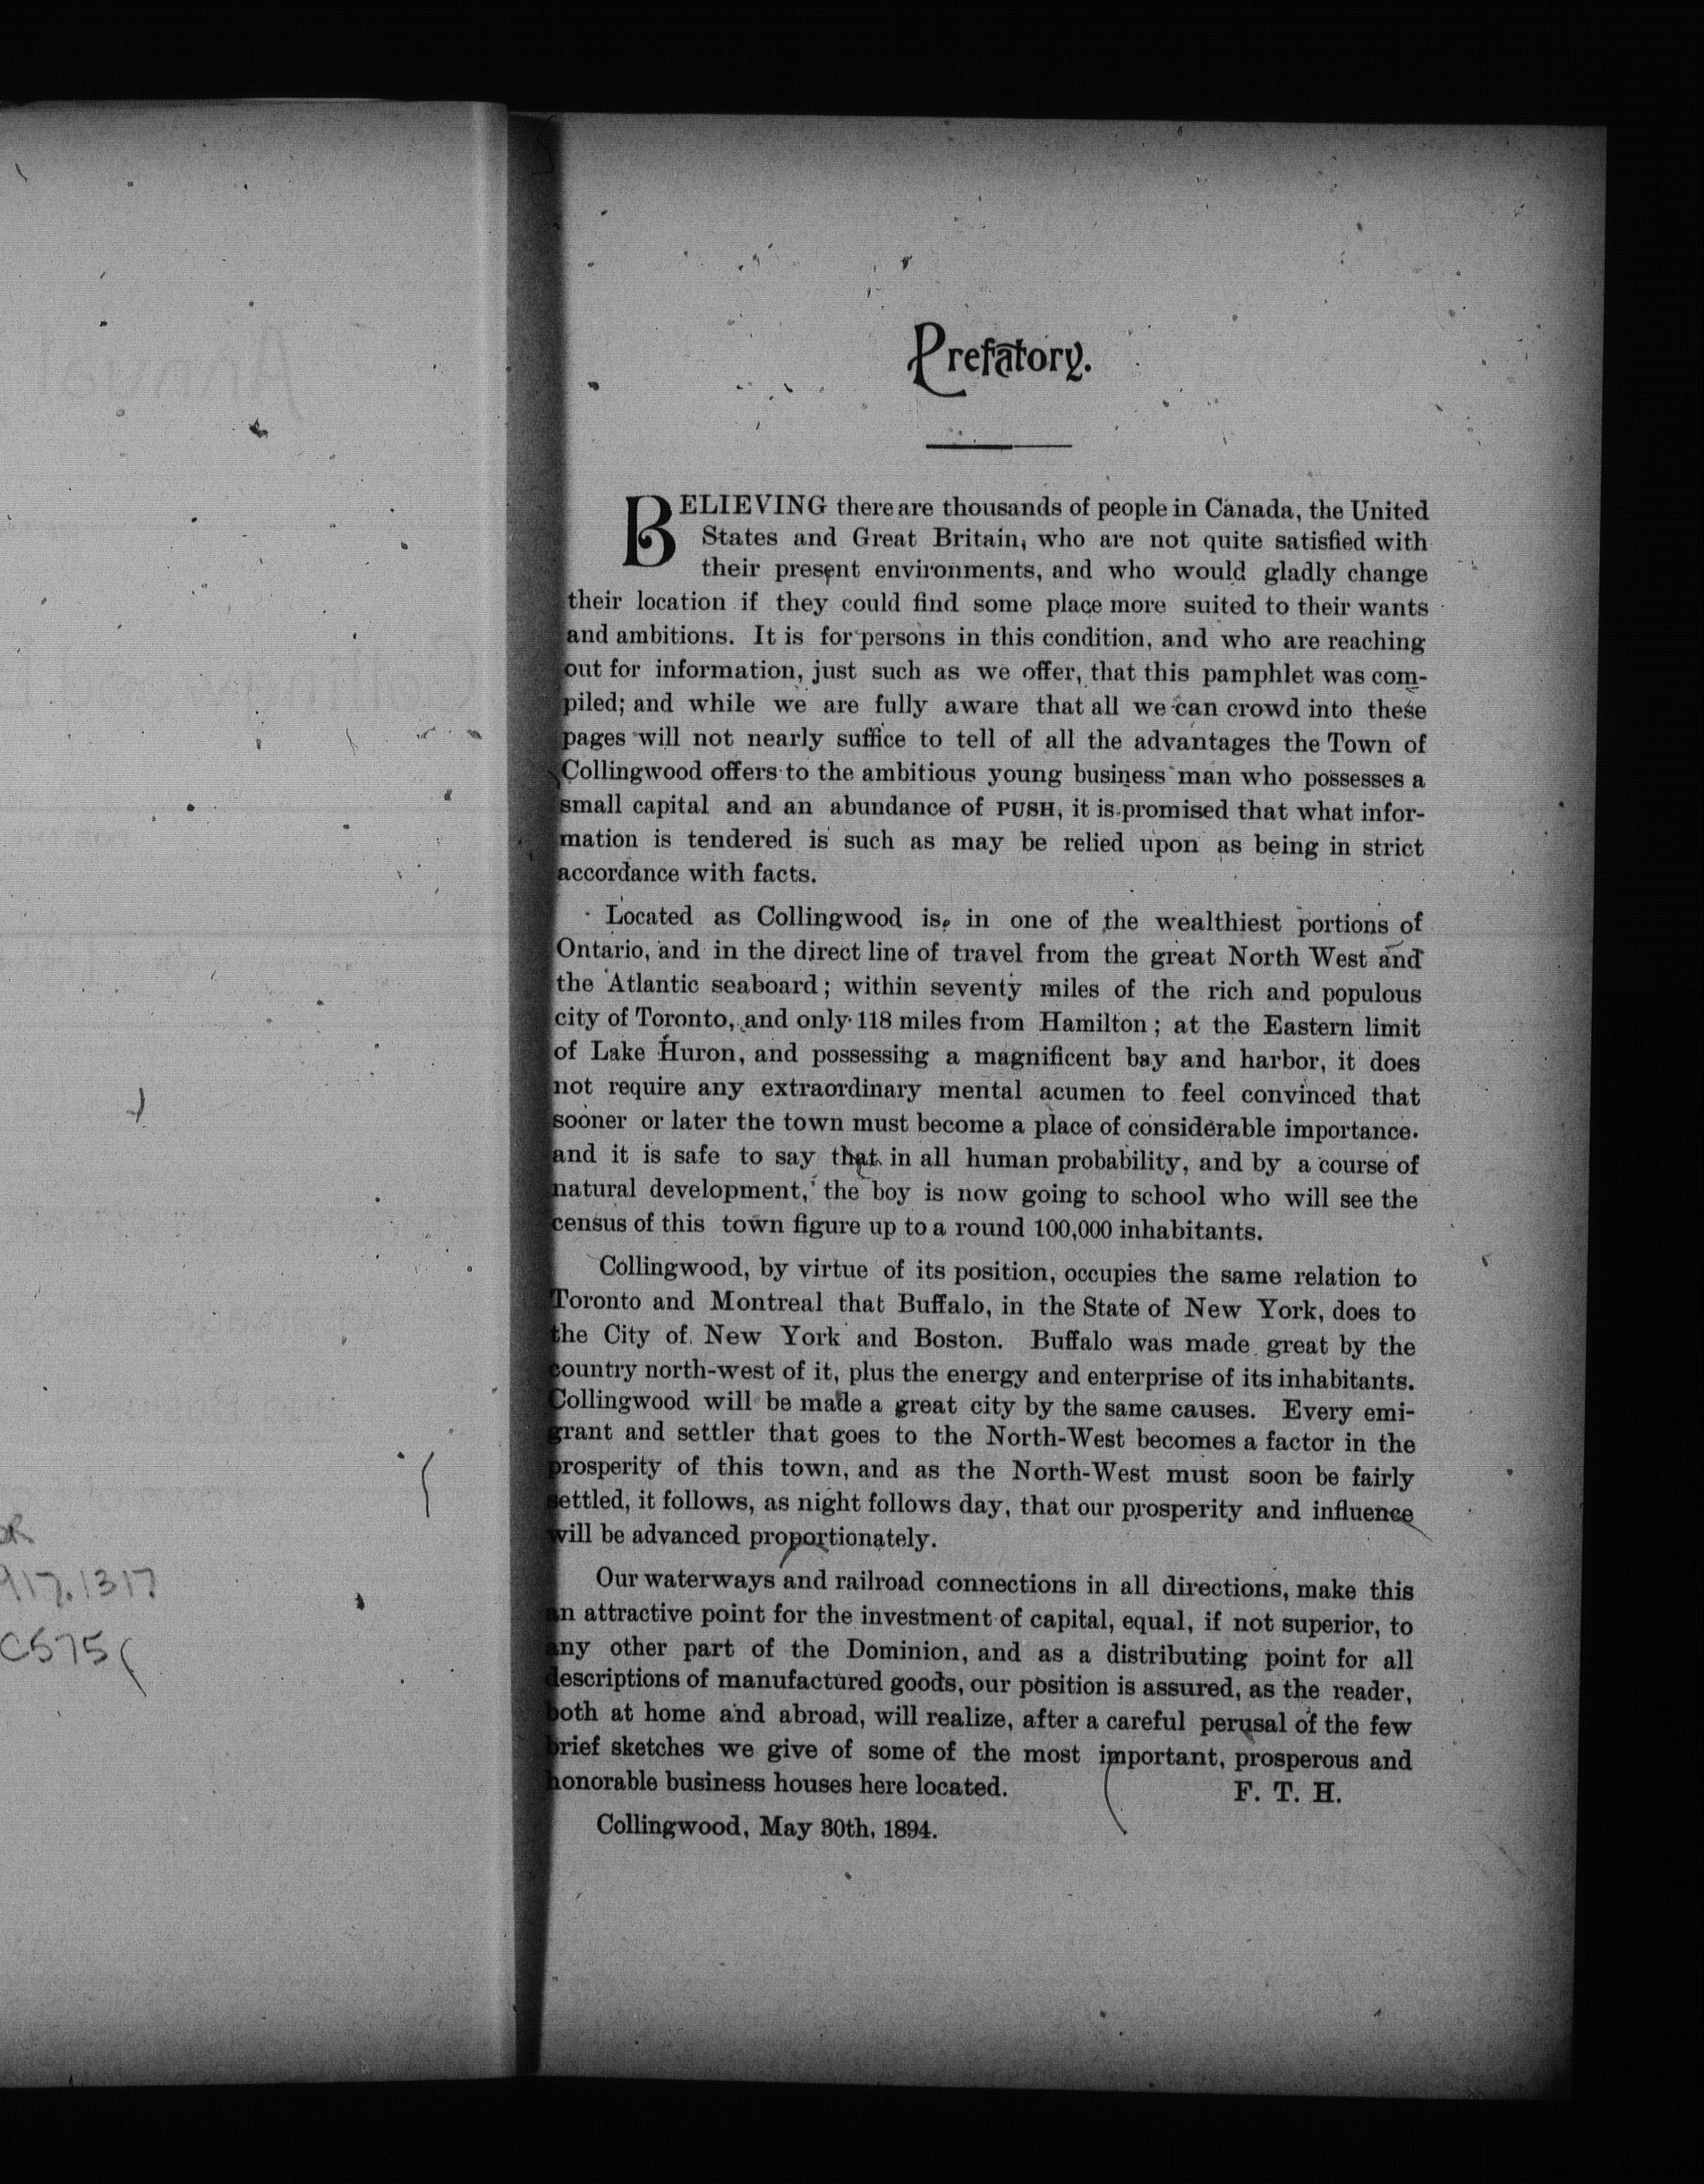 OR
917.1317
C575
Prefatory.
BELIEVING there are thousands of people in Canada, the United
States and Great Britain, who are not quite satisfied with
their present environments, and who would gladly change
their location if they could find some place more suited to their wants
and ambitions. It is for persons in this condition, and who are reaching
out for information, just such as we offer, that this pamphlet was com-
piled; and while we are fully aware that all we can crowd into these
pages will not nearly suffice to tell of all the advantages the Town of
Collingwood offers to the ambitious young business man who possesses a
small capital and an abundance of PUSH, it is promised that what infor-
mation is tendered is such as may be relied upon as being in strict
accordance with facts.
Located as Collingwood is, in one of the wealthiest portions of
Ontario, and in the direct line of travel from the great North West and
the Atlantic seaboard; within seventy miles of the rich and populous
city of Toronto, and only 118 miles from Hamilton; at the Eastern limit
of Lake Huron, and possessing a magnificent bay and harbor, it does
not require any extraordinary mental acumen to feel convinced that
sooner or later the town must become a place of considerable importance.
and it is safe to say that in all human probability, and by a course of
natural development, the boy is now going to school who will see the
census of this town figure up to a round 100,000 inhabitants.
Collingwood, by virtue of its position, occupies the same relation to
Toronto and Montreal that Buffalo, in the State of New York, does to
the City of New York and Boston. Buffalo was made great by the
country north-west of it, plus the energy and enterprise of its inhabitants.
Collingwood will be made a great city by the same causes. Every emi-
grant and settler that goes to the North-West becomes a factor in the
prosperity of this town, and as the North-West must soon be fairly
settled, it follows, as night follows day, that our prosperity and influence
will be advanced proportionately.
Our waterways and railroad connections in all directions, make this
an attractive point for the investment of capital, equal, if not superior, to
any other part of the Dominion, and as a distributing point for all
descriptions of manufactured goods, our position is assured, as the reader,
both at home and abroad, will realize, after a careful perusal of the few
brief sketches we give of some of the most important, prosperous and
honorable business houses here located. F. T. H.
Collingwood, May 30th, 1894.